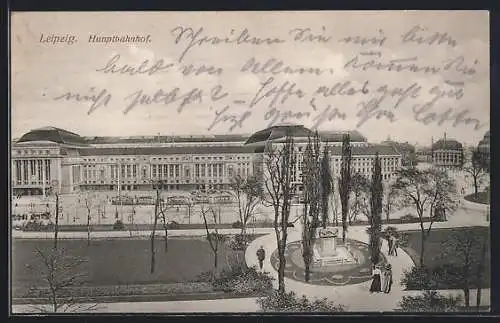 Leipzig. Hauptbahnhof.
Schreiben Sie mir bitte
bald von allem. Kommen Sie
nicht selbst? Ich hoffe alles geht gut.
Herzl. grüßt Ihr